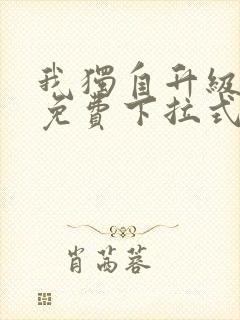 我獨自升級
免費下拉式
肖茜蓉